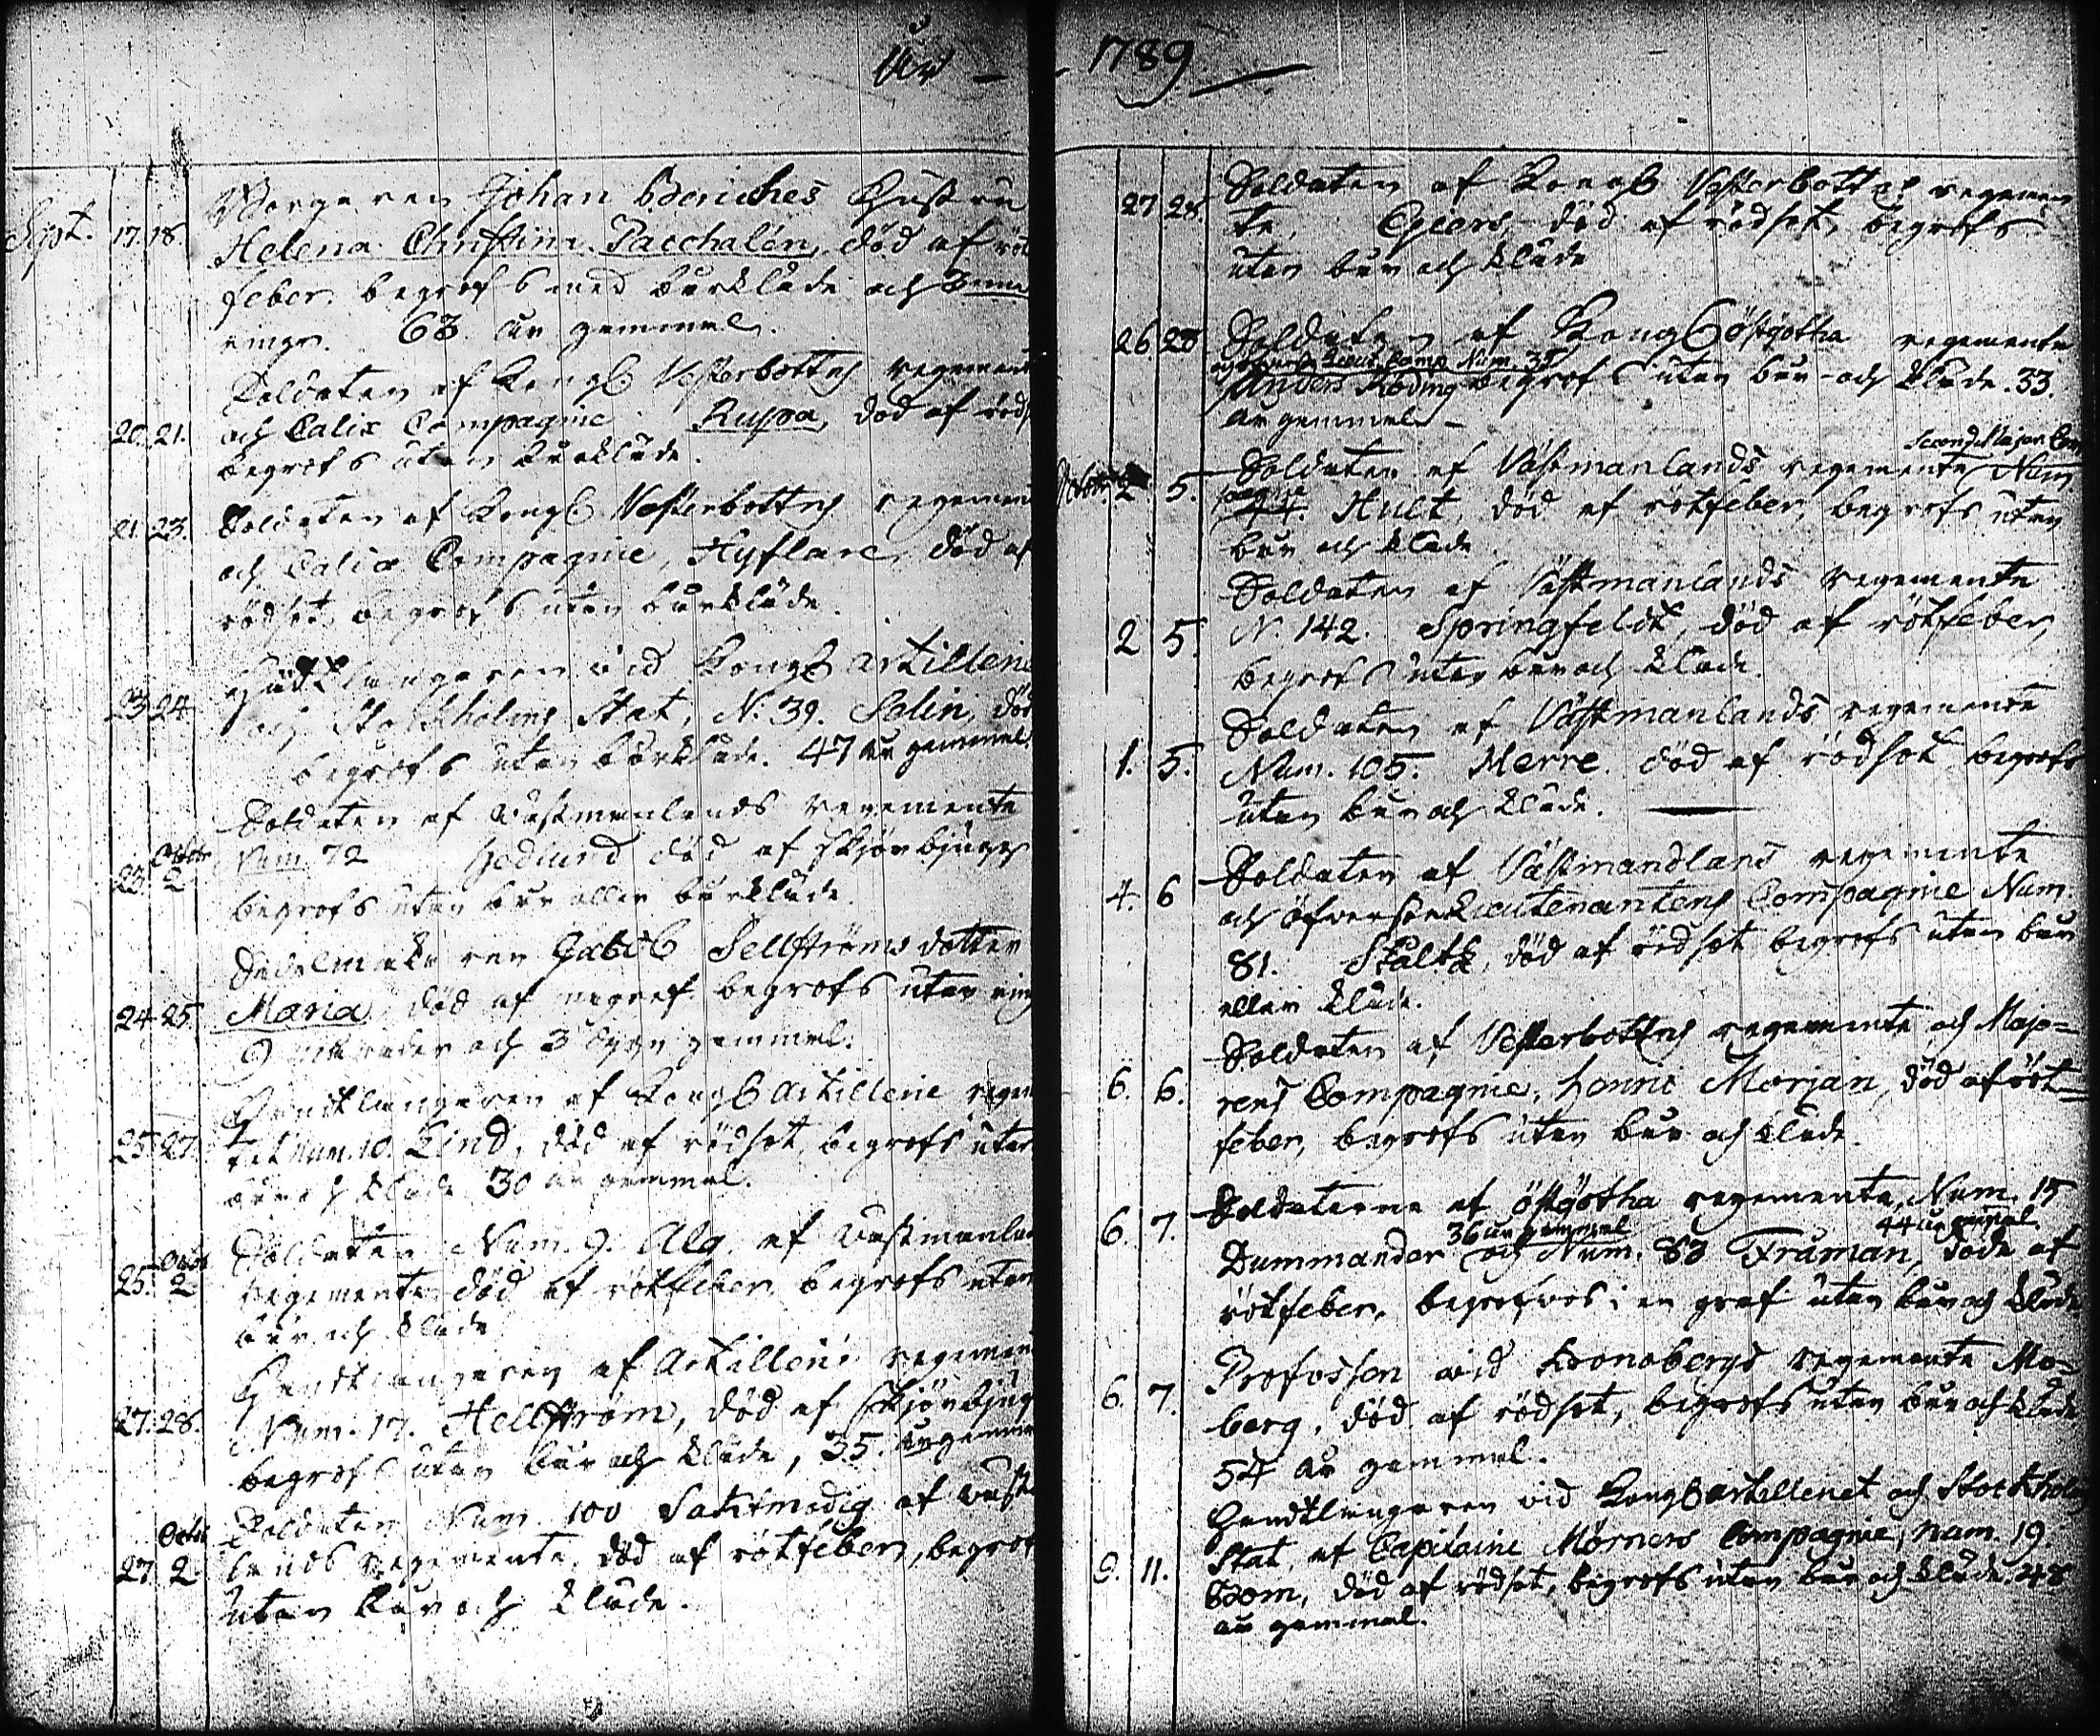 År — 1789
Sept. 17. 18. Borgaren Johan Beniches Hustru
Helena Christina Pacchalén, död af röt
feber, begrofs med bårkläde och
ringn. 63 år gammal.
Soldaten af Kongl Vesterbottns regemente
20. 21. och Calix Compagnie Ruspa, död af rödsot
begrofs utan bårkläde.
21. 23. Soldaten af Kongl Vesterbottns regemente
och Calix Compagnie, Hyflare, död af
rödsot, begrofs utan bårkläde.
Handtlangaren vid Kongl artilleriet
23 24 och Stockholms Stat, N. 39. Solin, död
begrofs utan bårkläde. 47 år gammal
Soldaten af Västmanlands regemente
23. Octobr 2 Num. 72 Hedlund död af skjörbjugg
begrofs utan bår eller bårkläde.
Sadelmakaren Jacob Sellströms dotter
24 25 Maria, död af begrofs utan ring
9 månader och 3 dygn gammal.
Handtlangaren af Kongl artilleriie regem
25 27. tet Num. 10. Lind, död af rödsot, begrofs utan
bår och kläde 30 år gammal.
Soldaten Num. 9. Alg. af Västmanlands
25. Octob 2 regemente, död af rötfeber, begrofs utan
bår och kläde
Handtlangaren af Artilleri regimen
27. 28. Num. 17. Hellström, död af skjörbjugg
begrofs utan bår och kläde, 35. år gammal
Soldaten Num. 100 Saktmodig af Västman
27. Octob 2 lands regemente, död af rötfeber, begrof
utan bår och kläde.
27 28. Soldaten af Kongl Vesterbottns regemen
te, Egiers, död af rödsot, begrofs
utan bår och kläde
26 28 Soldaten af Kongl östgötha regemente
Lieut. Comp Num. 35
Anders Röding begrofs utan bår och kläde. 33.
år gammal —
Second Major Com
Octobr. 2 5. Soldaten af Västmanlands regemente Num.
pagnie
44. Hult, död af rötfeber, begrofs utan
bår och kläde
Soldaten af Västmanlands regemente
2 5. N. 142. Springfeldt, död af rötfeber,
begrofs utan bår och kläde.
Soldaten af Västmanlands regemente
1. 5. Num. 105. Merre. död af rödsot begrofs
utan bår och kläde. —
Soldaten af Västmandlans regemente
4. 6 och öfverste Lieutenantens Compagnie Num.
81. Stålt, död af rödsot, begrofs utan bår
eller kläde.
Soldaten af Vesterbottns regemente och Majo=
6. 6. rens Compagnie, Lonnie Morjan, död af röt=
feber, begrofs utan bår och kläde.
Soldaterne af östgötha regemente, Num. 15
36 år gammal 44 år gammal
6. 7. Dummander och Num. 83 Fråman, döde af
rötfeber, begrofvos i en graf utan bår och kläde
Profossen vid Kronobergs regemente Mo=
6. 7. berg, död af rödsot, begrofs utan bår och kläde
54 år gammal.
Handtlangaren vid Kongl artilleriet och Stockholms
Stat, af Capitaine Mörners Compagnie, num. 19.
9. 11. Bom, död af rödsot, begrofs utan bår och kläde. 48
år gammal.